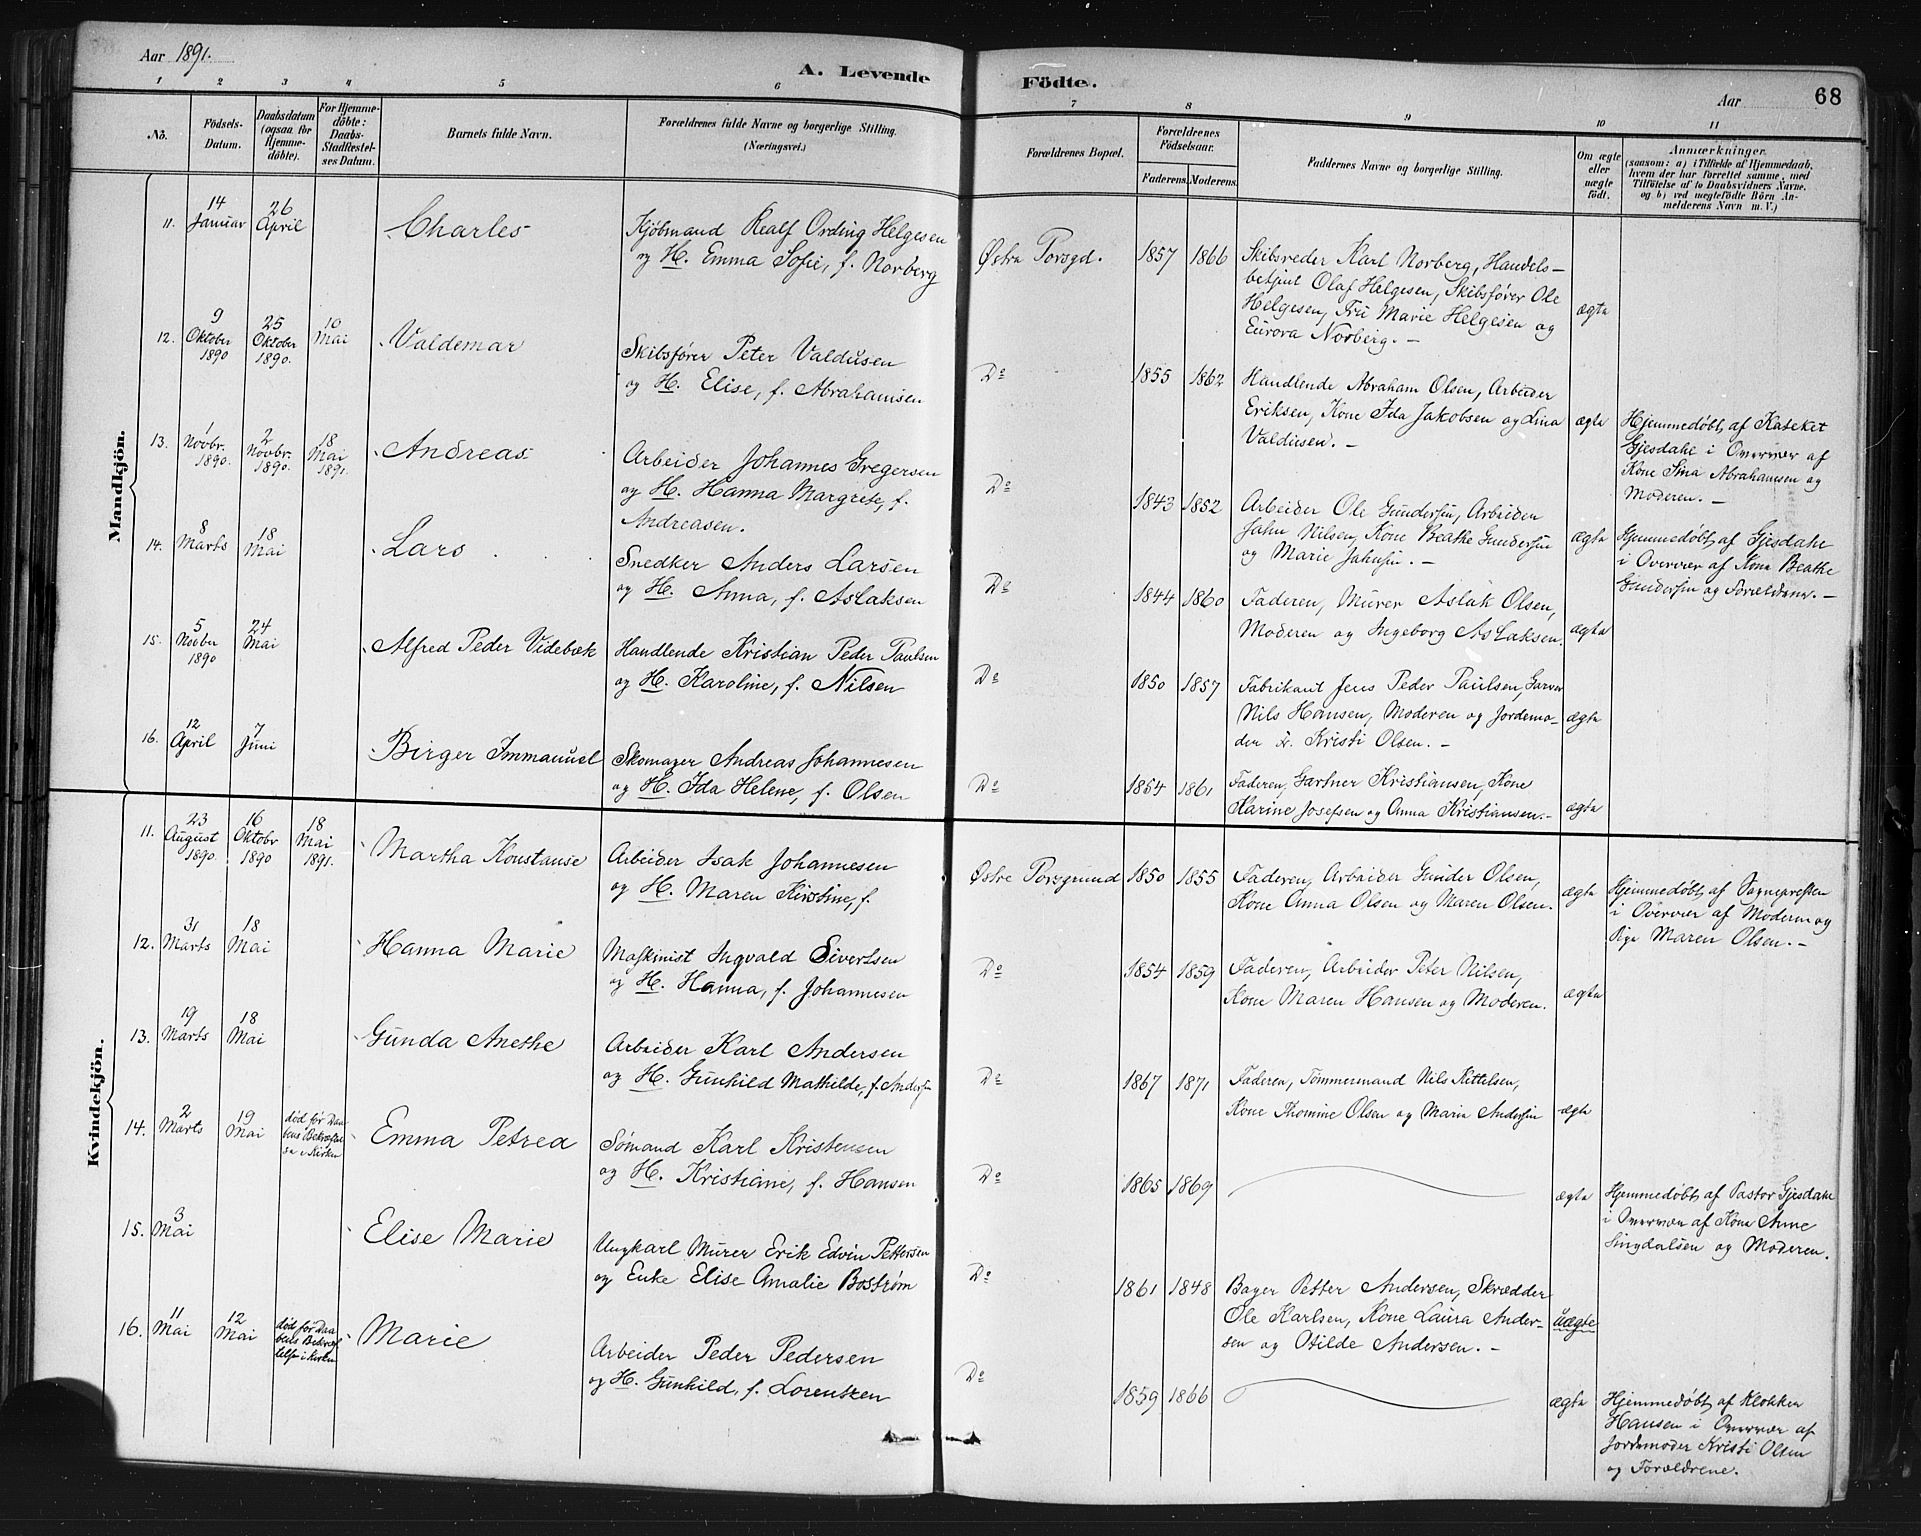 Aar 1891.
A. Levende Födte.
Aar 68
1 2 3 4 5 6 7 8 9 10 11
No.
Födsels-Datum.
Daabsdatum (ogsaa for Hjemme-döbte).
For Hjemme-döbte: Daabs-Stadfæstel-ses Datum.
Barnets fulde Navn.
Forældrenes fulde Navne og borgerlige Stilling.
(Næringsvei.)
Forældrenes Bopæl.
Forældrenes Födselsaar.
Faderens. Moderens.
Faddernes Navne og borgerlige Stilling.
Om ægte eller uægte födt.
Anmærkninger.
(saasom: a) i Tilfælde af Hjemmedaab,
hvem der har forrettet samme, med
Tilföielse af to Daabsvidners Navne,
og b) ved uegtefödte Börn An-
melderens Navn m. V.)
Mandkjön.
11. 14 Januar 26 April Charles
Kjöbmand Realf Ording Helgesen
og H. Emma Sofie, f. Norberg
Østre Porsgd. 1857 1866
Skibsreder Karl Norberg, Handels-
betjent Olaf Helgesen, Skibsfører Ole
Helgesen, Fru Marie Helgesen og
Eurora Norberg. -
ægte
12. 9 Oktober 1890 25 Oktober 1890. 10 Mai Valdemar
Skibsfører Peter Valdusen
og H. Elise, f. Abrahamsen
Do 1855 1862
Handlende Abraham Olsen, Arbeider
Eriksen, Kone Ida Jakobsen og Lina
Valdusen. -
ægte
Hjemmedøbt af Kateket
Gjesdahl i Overvær af
Kone Sina Abrahamsen og
Moderen. -
13. 1 Novbr. 1890. 2 Novbr. 1890. 18 Mai 1891. Andreas
Arbeider Johannes Gregersen
og H. Hanna Margrete, f.
Andreasen.
Do 1843 1852
Arbeider Ole Gundersen, Arbeider
Jahn Nilsen, Kone Beathe Gundersen
og Marie Jahnsen. -
ægte
Hjemmedøbt af Gjesdahl
i Overvær af Kone Beathe
Gundersen og Forældrene. -
14. 8 Marts 18 Mai Lars
Snedker Anders Larsen
og H. Anna, f. Aslaksen
Do 1844 1860
Faderen, Murer Aslak Olsen,
Moderen og Ingeborg Aslaksen.
ægte
15. 5 Novbr 1890 24 Mai Alfred Peder Videbæk
Handlende Kristian Peder Paulsen
og H. Karoline, f. Nilsen
Do 1850 1857
Fabrikant Jens Peder Paulsen, Garver
Nils Hansen, Moderen og Jordemo-
der Fr. Kristi Olsen. -
ægte
16. 12 April 7 Juni Birger Immanuel
Skomager Andreas Johannesen
og H. Ida Helene, f. Olsen
Do 1854 1861
Faderen, Gartner Kristiansen, Kone
Karine Josefsen og Anna Kristiansen. -
ægte
Kvindekjön.
11. 23 August 1890. 16 Oktobr 1890 18 Mai 1891. Martha Konstanse
Arbeider Isak Johannesen
og H. Maren Kirstine, f.
Østre Porsgrund 1850 1855
Faderen, Arbeider Gunder Olsen,
Kone Anna Olsen og Maren Olsen.
ægte
Hjemmedøbt af Sognepresten
i Overvær af Moderen og
Pige Maren Olsen. -
12. 31 Marts 18 Mai Hanna Marie
Maskinist Ingvald Sivertsen
og H. Hanna, f. Johannesen
Do 1854 1859
Faderen, Arbeider Peter Nilsen,
Kone Maren Hansen og Moderen.
ægte
13. 19 Marts 18 Mai Gunda Anethe
Arbeider Karl Andersen
og H. Gunhild Mathilde, f. Andersen
Do 1867 1871
Faderen, Tømmermand Nils Kittelsen,
Kone Thomine Olsen og Maria Andersen
ægte
14. 2 Marts 19 Mai død før Daabens Bekræftelse i Kirken Emma Petrea
Sømand Karl Kristensen
og H. Kristiane, f. Hansen
Do 1865 1869
ægte
Hjemmedøbt af Pastor Gjesdahl
i Overvær af Kone Anne
Lingdalsen og Moderen.
15. 3 Mai Elise Marie
Ungkarl Murer Erik Edvin Pettersen
og Enke Elise Amalie Bostrøm
Do 1861 1848
Bager Petter Andersen, Skrædder
Ole Karlsen, Kone Laura Ander-
sen og Otilde Andersen. -
uægte
16. 11 Mai 12 Mai død før Daabens Bekræftelse i Kirken Marie
Arbeider Peder Pedersen
og H. Gunhild, f. Lorentzen
Do 1859 1866
ægte
Hjemmedøbt af Klokker
Hansen i Overvær af
Jordemoder Kristi Olsen
og Forældrene.